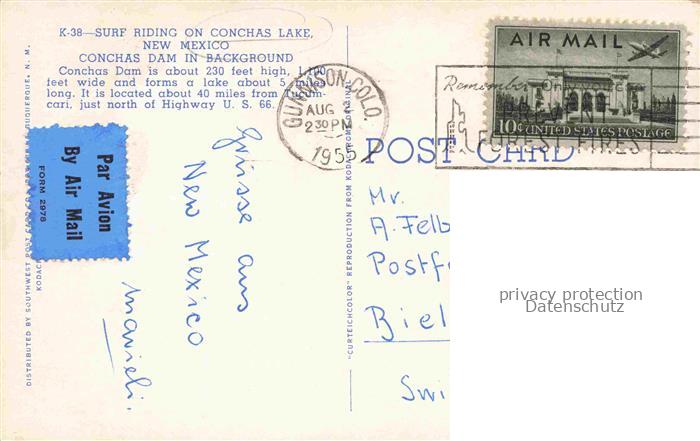 K-38—SURF RIDING ON CONCHAS LAKE,
NEW MEXICO
CONCHAS DAM IN BACKGROUND
Conchas Dam is about 230 feet high, 1,100
feet wide and forms a lake about 5 miles
long. It is located about 40 miles from Tucum-
cari, just north of Highway U. S. 66.
GUNNISON, COLO.
AUG
2 30 PM
1955
AIR MAIL
Remember Only you can
PREVENT
FOREST FIRES!
10¢ UNITED STATES POSTAGE
POST CARD
Par Avion
By Air Mail
FORM 2978
DISTRIBUTED BY SOUTHWEST POST CARD CO., ALBUQUERQUE, N. M.
KODACHROME
"CURTEICHCOLOR" REPRODUCTION FROM KODACHROME ORIGINAL
Grüsse aus
New Mexico
Mr.
A. Felb
Postf
Biel
Swi
privacy protection
Datenschutz